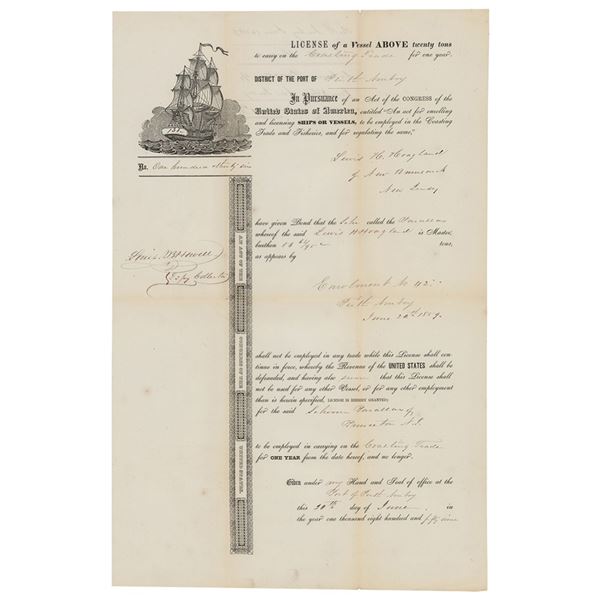 LICENSE of a Vessel ABOVE twenty tons
to carry on the Coasting Trade for one year.
DISTRICT OF THE PORT OF Perth Amboy
In Pursuance of an Act of the CONGRESS of the
United States of America, entitled "An act for enrolling
and licensing SHIPS OR VESSELS, to be employed in the Coasting
Trade and Fisheries, and for regulating the same,"
No. One hundred thirty one
Lewis H. Hoagland
of New Brunswick
New Jersey
have given Bond that the Schr called the
whereof the said Lewis H Hoagland is Master,
burthen tons,
as appears by
Dpy Collector
Enrolment No 42
Perth Amboy
June 20th 1859
shall not be employed in any trade while this License shall con-
tinue in force, whereby the Revenue of the UNITED STATES shall be
defrauded, and having also sworn that this License shall
not be used for any other Vessel, or for any other employment
than is herein specified, LICENSE IS HEREBY GRANTED;
for the said Schooner of
Princeton N.J.
to be employed in carrying on the Coasting Trade
for ONE YEAR from the date hereof, and no longer.
Given under my Hand and Seal of office at the
Port of Perth Amboy
this 20th day of June in
the year one thousand eight hundred and fifty nine
AN ACT OF THE
CONGRESS OF THE
UNITED STATES.